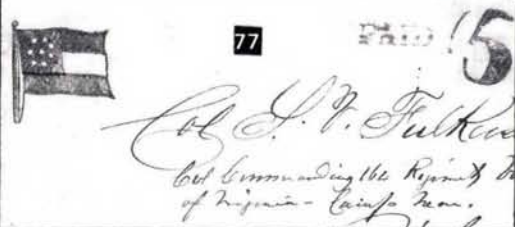 77
PAID 5
Col S. V. Fulke
Col Commanding Regiment
of Virginia - Camp near.